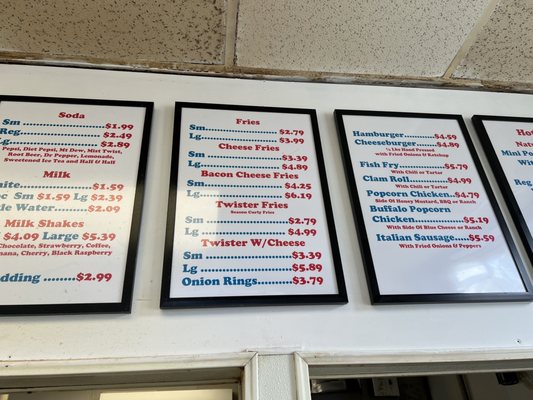 Soda
Sm $1.99
Reg $2.49
Lg $2.89
Pepsi, Diet Pepsi, Mt Dew, Mist Twist,
Root Beer, Dr Pepper, Lemonade,
Sweetened Ice Tea and Half & Half
Milk
$1.59
Sm $1.59 Lg $2.39
Water $2.09
Milk Shakes
$4.09 Large $5.39
Chocolate, Strawberry, Coffee,
Cherry, Black Raspberry
$2.99
Fries
Sm $2.79
Lg $3.99
Cheese Fries
Sm $3.39
Lg $4.89
Bacon Cheese Fries
Sm $4.25
Lg $6.19
Twister Fries
Season Curly Fries
Sm $2.79
Lg $4.99
Twister W/Cheese
Sm $3.39
Lg $5.89
Onion Rings $3.79
Hamburger $4.59
Cheeseburger $4.89
Hand Pressed
with Fried Onions & Ketchup
Fish Fry $5.79
With Chili or Tartar
Clam Roll $4.99
With Chili or Tartar
Popcorn Chicken $4.79
Side Of Honey Mustard, BBQ or Ranch
Buffalo Popcorn
Chicken $5.19
With Side Of Blue Cheese or Ranch
Italian Sausage $5.59
with Fried Onions & Peppers
Mini
Reg